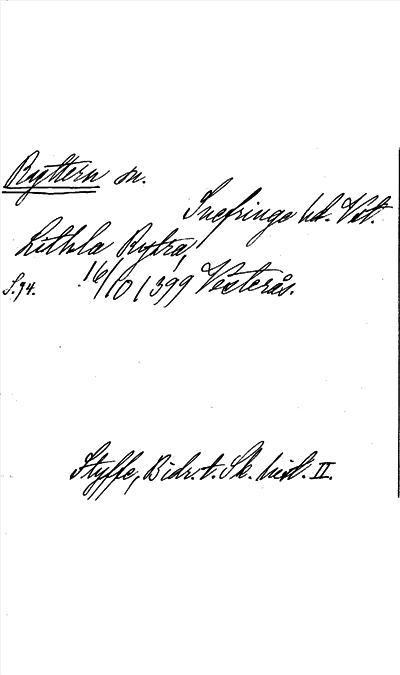 Ryttern sn.
Snefringe hd. Vstm.
Lithla Rytra,
S. 94. 16/10 1399 Vesterås.
Styffe, Bidr. t. Sk. hist. II.